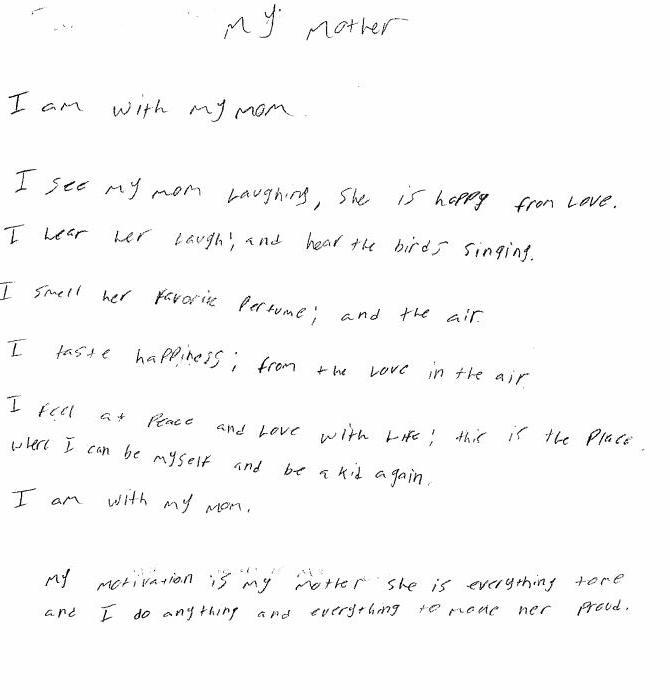 My Mother
I am with my mom.
I see my mom Laughing, she is happy from Love.
I hear her Laugh; and hear the birds singing.
I smell her Favorite Perfume; and the air.
I taste happiness; from the Love in the air
I feel at Peace and Love with Life; this is the Place.
where I can be myself and be a kid again.
I am with my mom.
My motivation is my Mother she is everything to me
and I do anything and everything to made her proud.